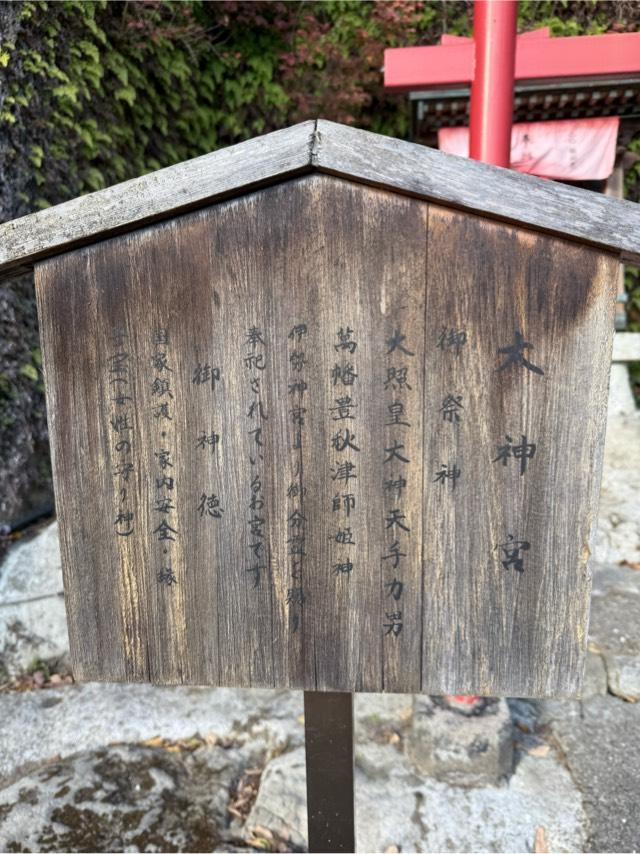 大神宮
御祭神
大照皇大神天手力男
萬幡豊秋津師姫神
伊勢神宮より御分霊を賜り
奉祀されているお宮です
御神徳
国家鎮護・家内安全・縁
子宝(女性の守り神)